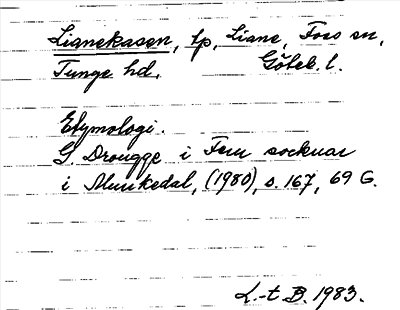 Lianekasen, tp, Liane, Foss sn,
Tunge hd. Göteb. l.
Etymologi.
G. Drougge i Fem socknar
i Munkedal, (1980), s. 167, 69 G.
L.-t B. 1983.